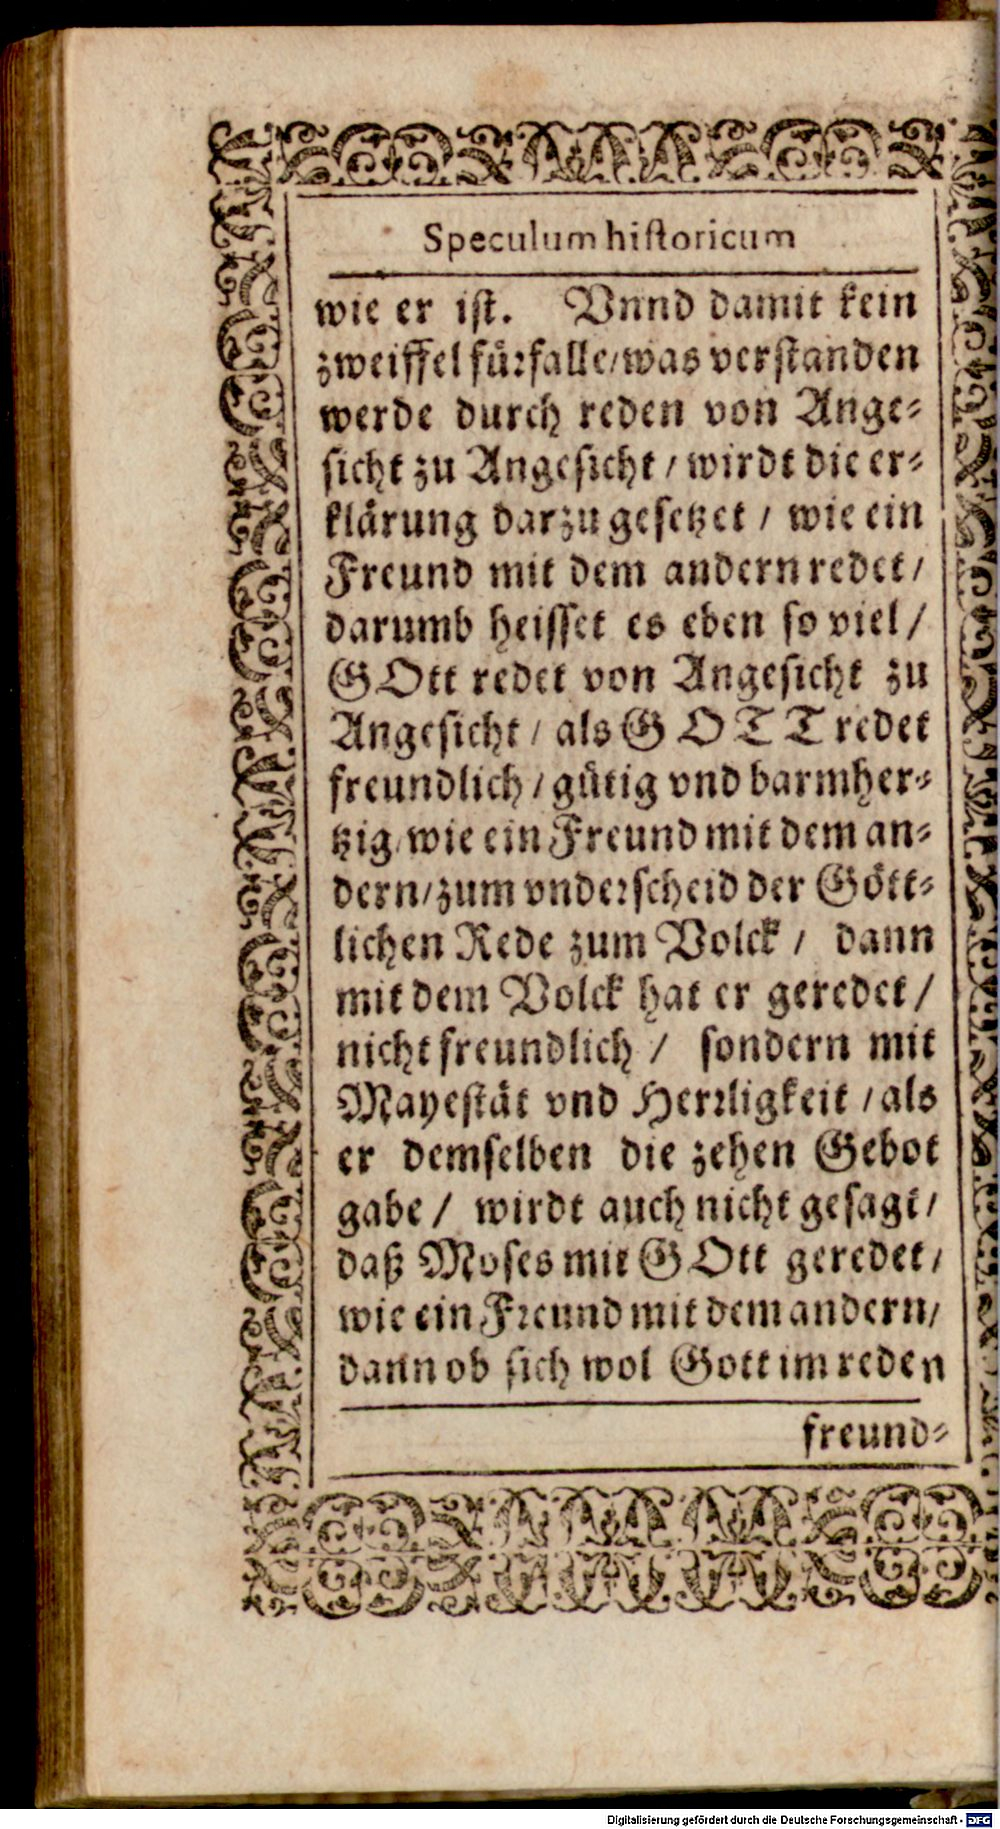 Speculum historicum
wie er ist. Vnnd damit kein
zweiffel fürfalle/was verstanden
werde durch reden von Ange-
sicht zu Angesicht / wirdt die er-
klärung darzu gesetzet / wie ein
Freund mit dem andern redet/
darumb heisset es eben so viel/
GOtt redet von Angesicht zu
Angesicht / als GOTT redet
freundlich / gütig vnd barmher-
tzig/wie ein Freund mit dem an-
dern/zum vnderscheid der Gött-
lichen Rede zum Volck / dann
mit dem Volck hat er geredet/
nicht freundlich / sondern mit
Mayestät vnd Herrligkeit / als
er demselben die zehen Gebot
gabe / wirdt auch nicht gesagt/
daß Moses mit GOtt geredet/
wie ein Freund mit dem andern/
dann ob sich wol Gott im reden
freund-
Digitalisierung gefördert durch die Deutsche Forschungsgemeinschaft - DFG